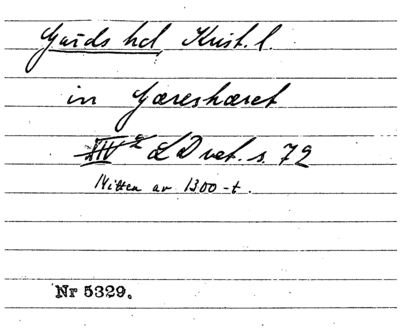 Gārds hd, Krist. l.
in Gæreshæret
XIV 2 LDvet. s. 72
Mitten av 1300-t.
Nr 5329.